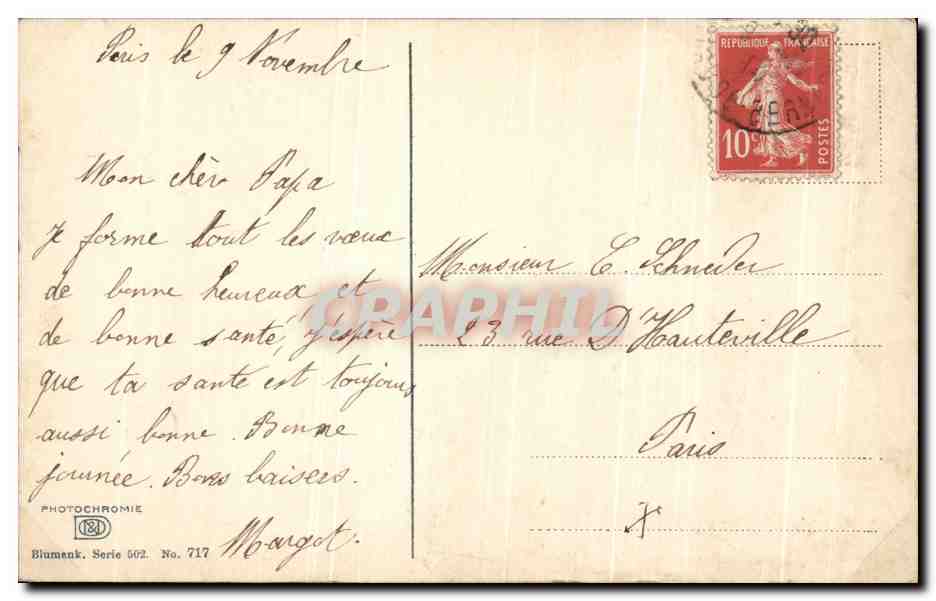 Paris le 9 Novembre
Mon chèr Papa
je forme tout les vœux
de bonne heureux et
de bonne santé, j'espère
que ta santé est toujours
aussi bonne. Bonne
journée. Bons baisers.
Margot.
PHOTOCHROMIE
Blumenk. Serie 502. No. 717
REPUBLIQUE FRANÇAISE
10c
POSTES
Monsieur E. Schneder
23 rue D'Hauteville
Paris
CPAPHIL